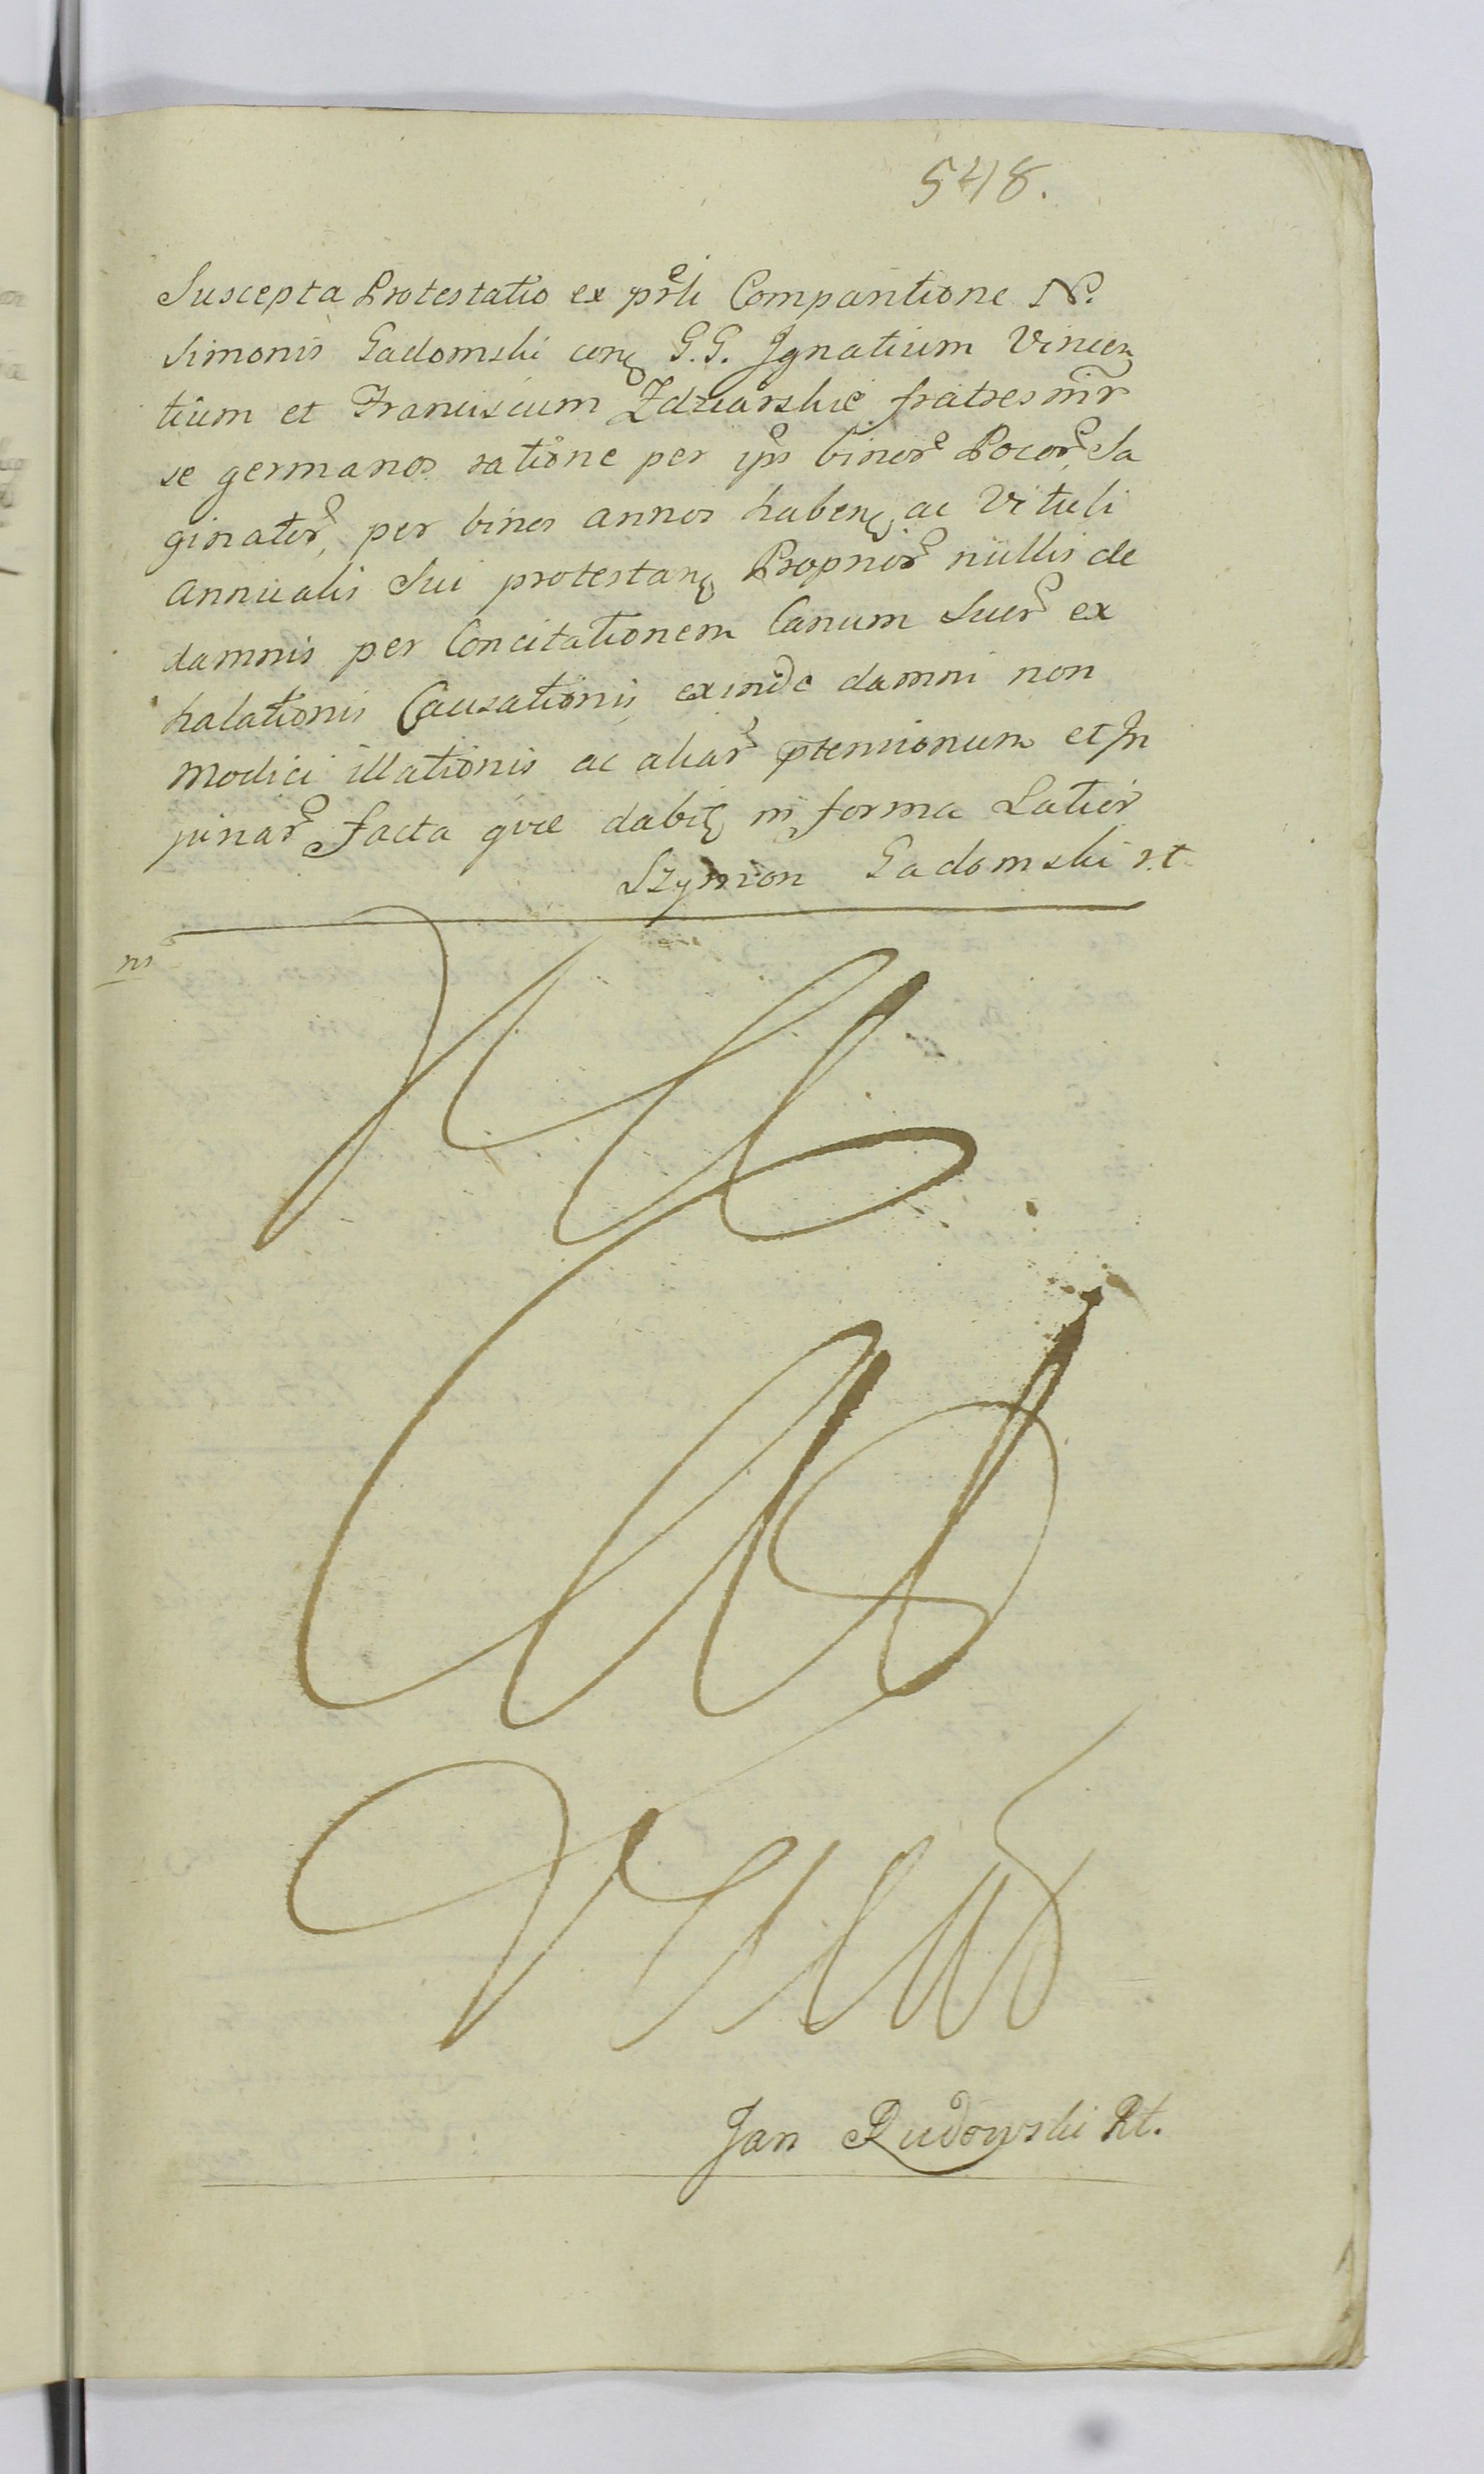 548.
Suscepta Protestatio ex prli Compantione N.
Simonis Gadomski con G.G. Ignatium Vincen
tium et Franciscum Zdziarskie fratres inr
se germanos ratione per ips binor Pocor, Sa
ginator, per binos annos haben ac Vituli
annualis Sui protestan Propnior nullis de
damnis per Concitationem Canum Suor ex
halationis Causationis exinde damni non
modici illationis ac aliar ptensionum et In
juriar facta qvae dabit in forma Latior
Szymon Gadomski rt
ns
Jan Rudowski Rt.